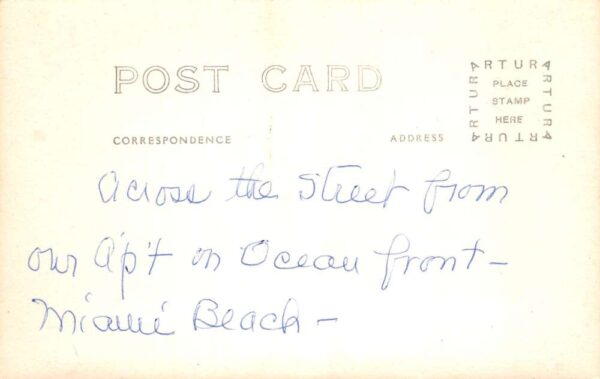 POST CARD
ARTURA
ARTURA
ARTURA
ARTURA
PLACE
STAMP
HERE
CORRESPONDENCE
ADDRESS
Across the Street from
our Ap't on Ocean front -
Miami Beach -